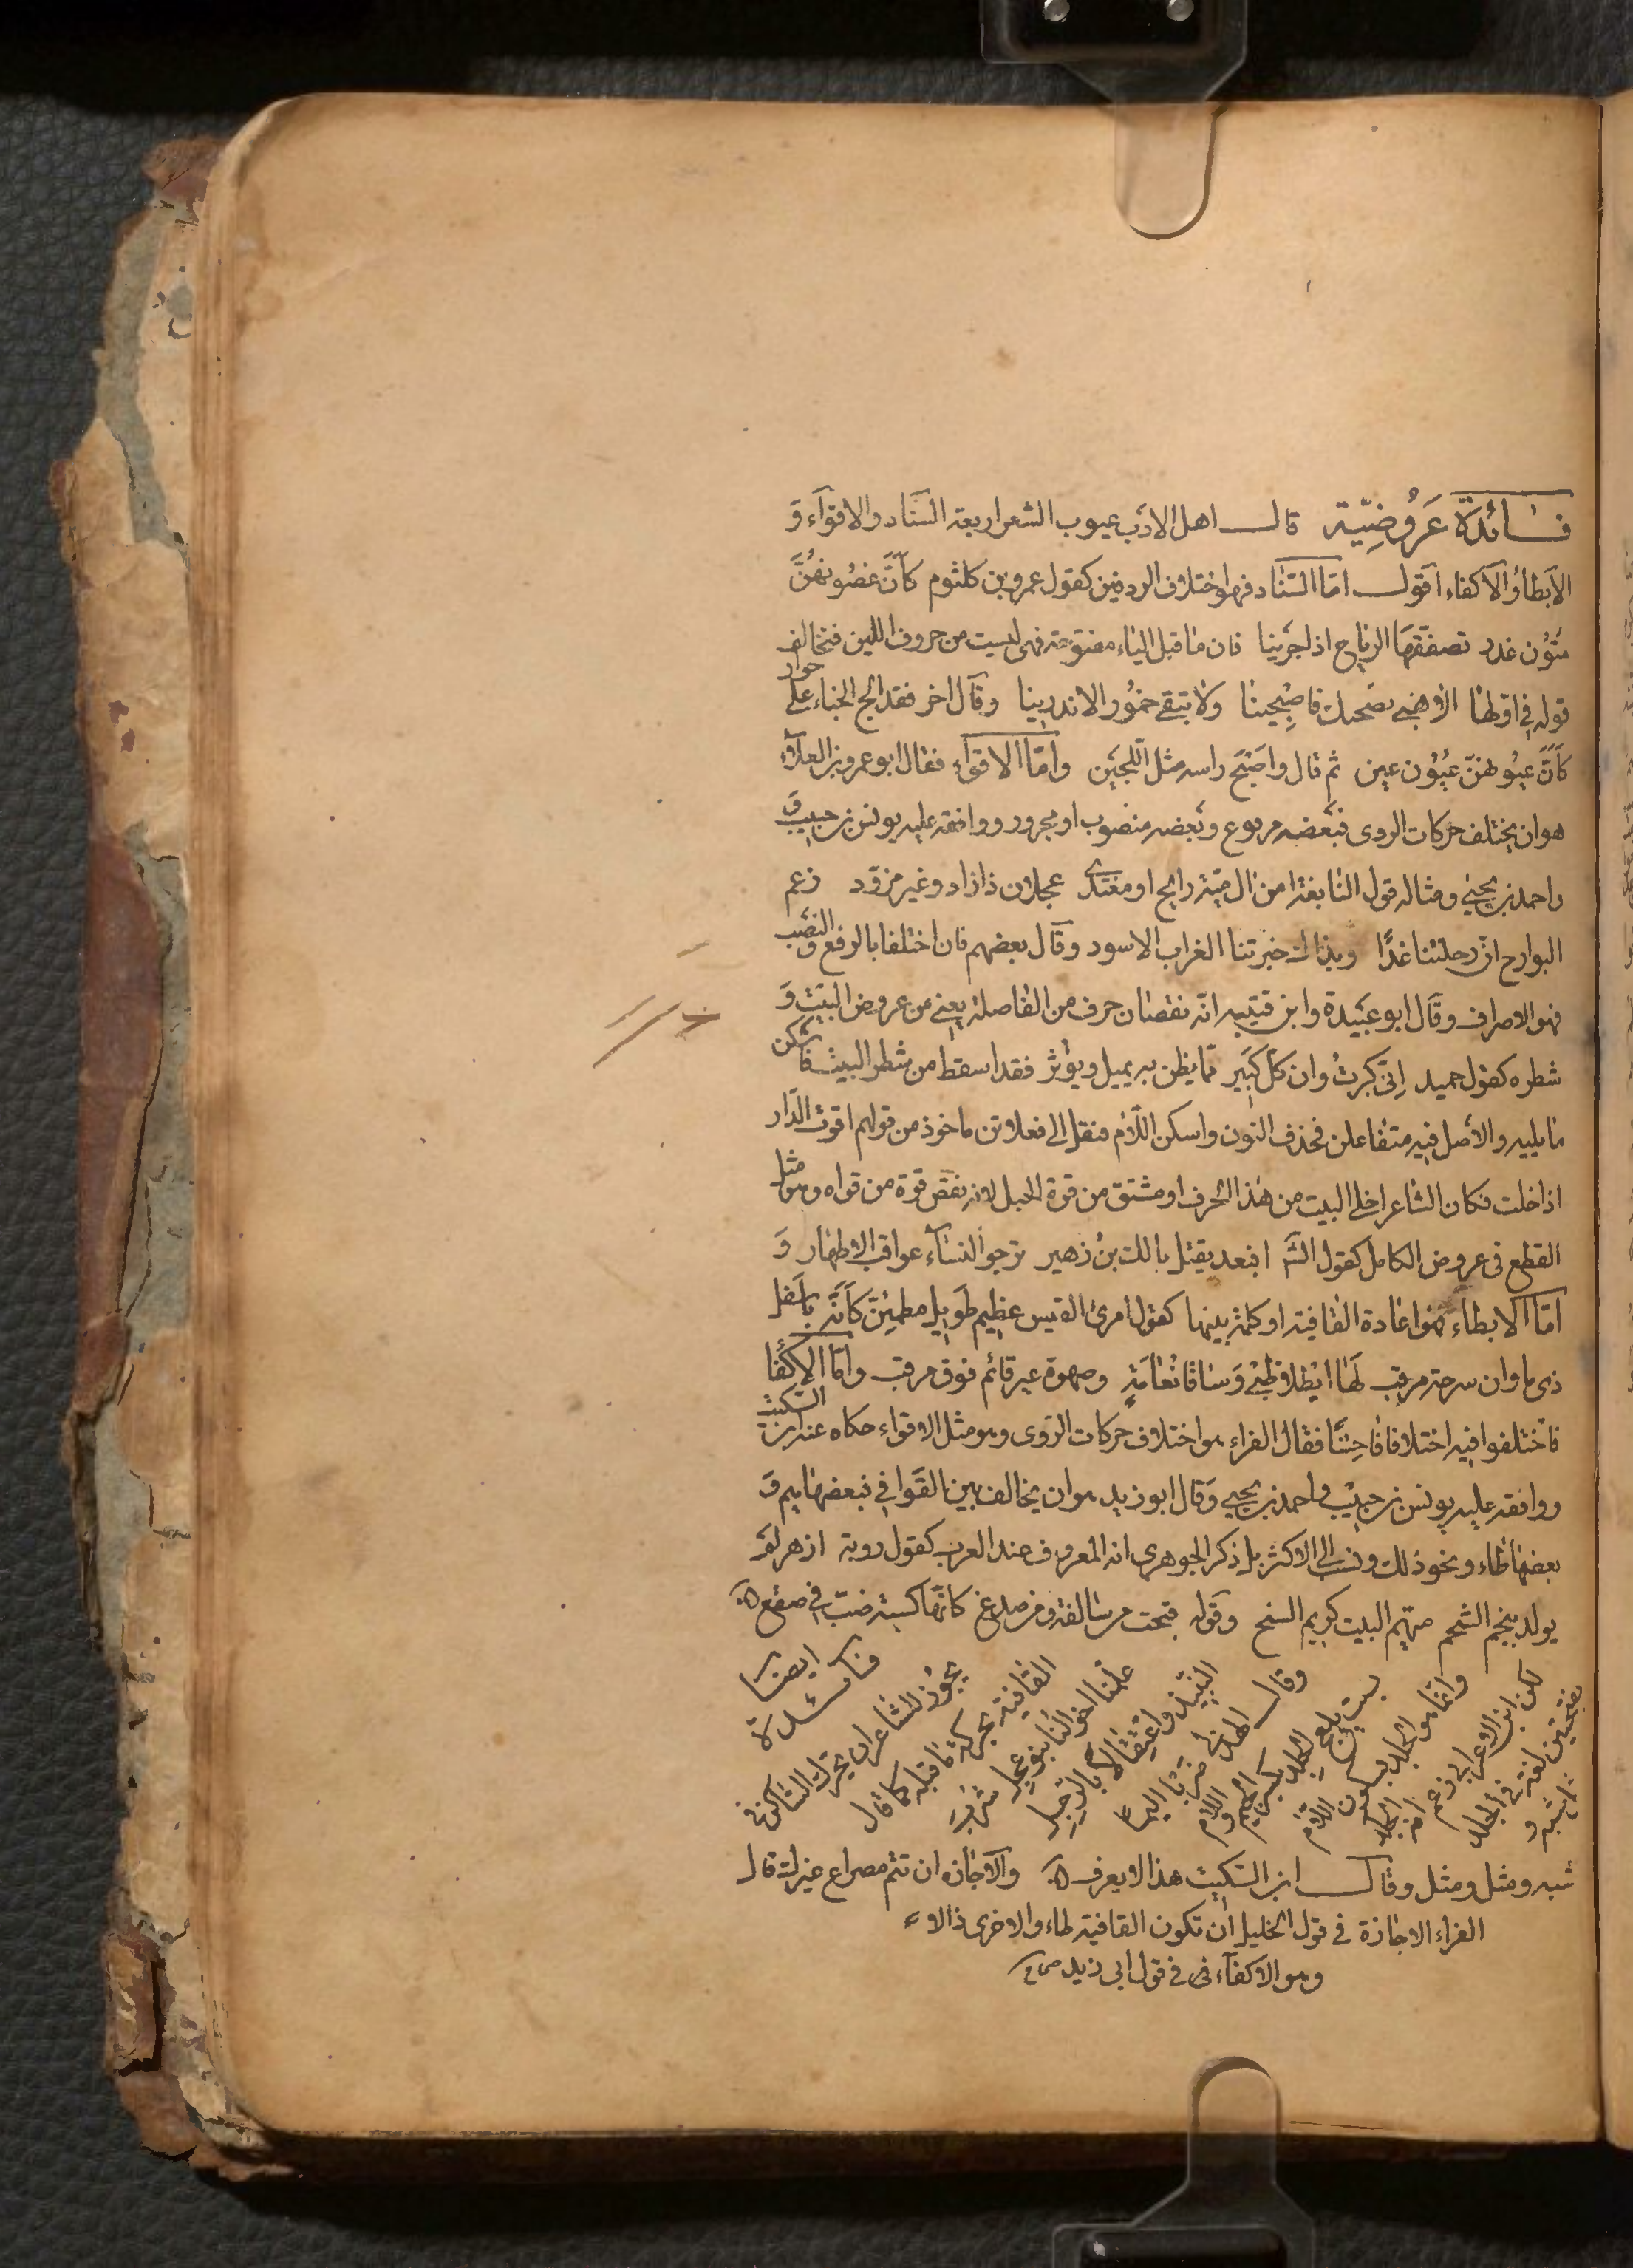 فائدة عَرُوضِيّة قال اهل الادب عيوب الشعر اربعة السناد والاقوآء وَ
الابطاُ والاكفاء اقول امّا السّناد فهو اختلاف الردفين كقول عمرو بن كلثوم كاَنَّ غضُونهُنَّ
متُوُن غدر تصفقها الرياح اذا جرَينا فان ما قبل الياء مفتوحة فهى ليست من حروف اللين فتخالف
قوله في اولها الا هبى بصحنك فاصبحينا ولا تبقى خمُور الاندرينا وقال اخر فقد الج الخباء على جوار
كَانّ عيُونهنّ عيُوُن عين ثم قال واصَبَح راسه مثل اللّجَين وامّا الاقوآء فقال ابو عمرو بن العلآء
هو ان يختلف حركات الروى فبَعضه مرفوع وبَعضه منصوب او مجرور ووافقه عليه يونس بن حبيب وَ
واحمد بن يحيى ومثاله قول النابغة امن ال ميّة رايح او مغتدى عجلان ذا زاد وغير مزوّد زعم
البوارح انّ رحلتنا غدًا وبذاك خبرتنا الغراب الاسود وقال بعضهم فان اختلفا بالرفع والنصَب
فهو الاصراف وقال ابو عبَيدة وابن قتيبه انّه نقصان حرف من الفاصلة يعنى من عروض البيَت وَ
شطره كقول حميد اِنّى كبرتُ وان كلّ كبَير ممّا يظن به يميل ويؤثر فقد اسقط من شطر البيت فاسكن
ما يليه والاصل فيه متفاعلن فحذف النون واسكن اللآم فنقل الى فعلاتن ماخوذ من قولهم اقوت الدّار
اذا خلت فكان الشاعر اخلى البيت من هذا الحرف او مشتق من قوة الحبل لانه نقص قوة من قواه وهو مثل
القطع فى عروض الكامل كقول الش افبعد يقتل بالك بنُ زهير ترجو النسآء عواقب الاطهار وَ
امّا الابطاء فهو اعادة القافية او كلمة بينها كقول امرئ القيس عظيم طوَيل مطمئنّ كاَنّه باسَفل
ذى ماوان سرحة مرقب لَها ايْطلا ظبْى وَسَاقا نُعَامَةٍ وصهوة عير قائم فوق مرقب وامّا الاكفا
فاختلفوا فيه اختلافا فاحِشًا فقال الفراء هو اختلاف حركات الروى وهو مثل الاقواء حكاه عنه ابن السّكيت
ووافقه عليه يونس بن حبيَب واحمد بن يحيى وقال ابو زيد هو ان يخالف بين القوافي فبعضها ميم وَ
بعضها طاء ونحو ذلك ونسب الى الاكثر بل ذكر الجوهرى انه المعروف عند العرب كقول روبة ازهر لم
يولد بنجم الشح ميمّم البيت كريم السنح وقوله قبحت من سالفة ومن صدغ كانّها كشية ضبّ فى صقع
فائدة ايضا
يجوُز للشاعر ان يحرّك الساكن فى
القافية بحركة ما قبله كما قال
علّمنا اخوالُنا بنو عجل شرُب
النبيذ واعتقالا بالرِجل
وقال الهذلى ضربًا اليما
بسبت يلعج الجِلد بكسر الجيم واللام
وانّما هو الجلد بسكون اللام
لكن ابن الاعرابى زعم انه الجلد
بفتحتين لغة فى الجلد
مثل شبه و
شبه ومثل ومثل وقال ابن السّكيت هذا لا يعرف والاجازه ان تتم مصراع غيرك قال
الفراء الاجازة في قول الخليل ان تكون القافية طاء والاخرى ذالا
وهو الاكفآء فى قول ابى زيد